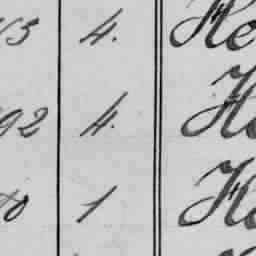 15 4. He
92 4. He
10 1 He